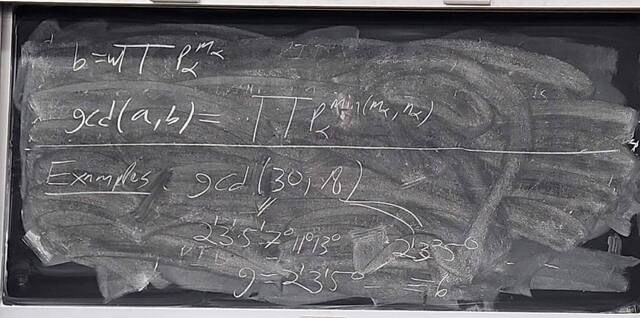 b = π∏ P_α^{m_α}
gcd(a,b) = ∏ P_α^{min(m_α, n_α)}
Examples. gcd(30, 18)
2¹3¹5¹7⁰11⁰13⁰ 2¹3²5⁰
g = 2¹3¹5⁰ = 6